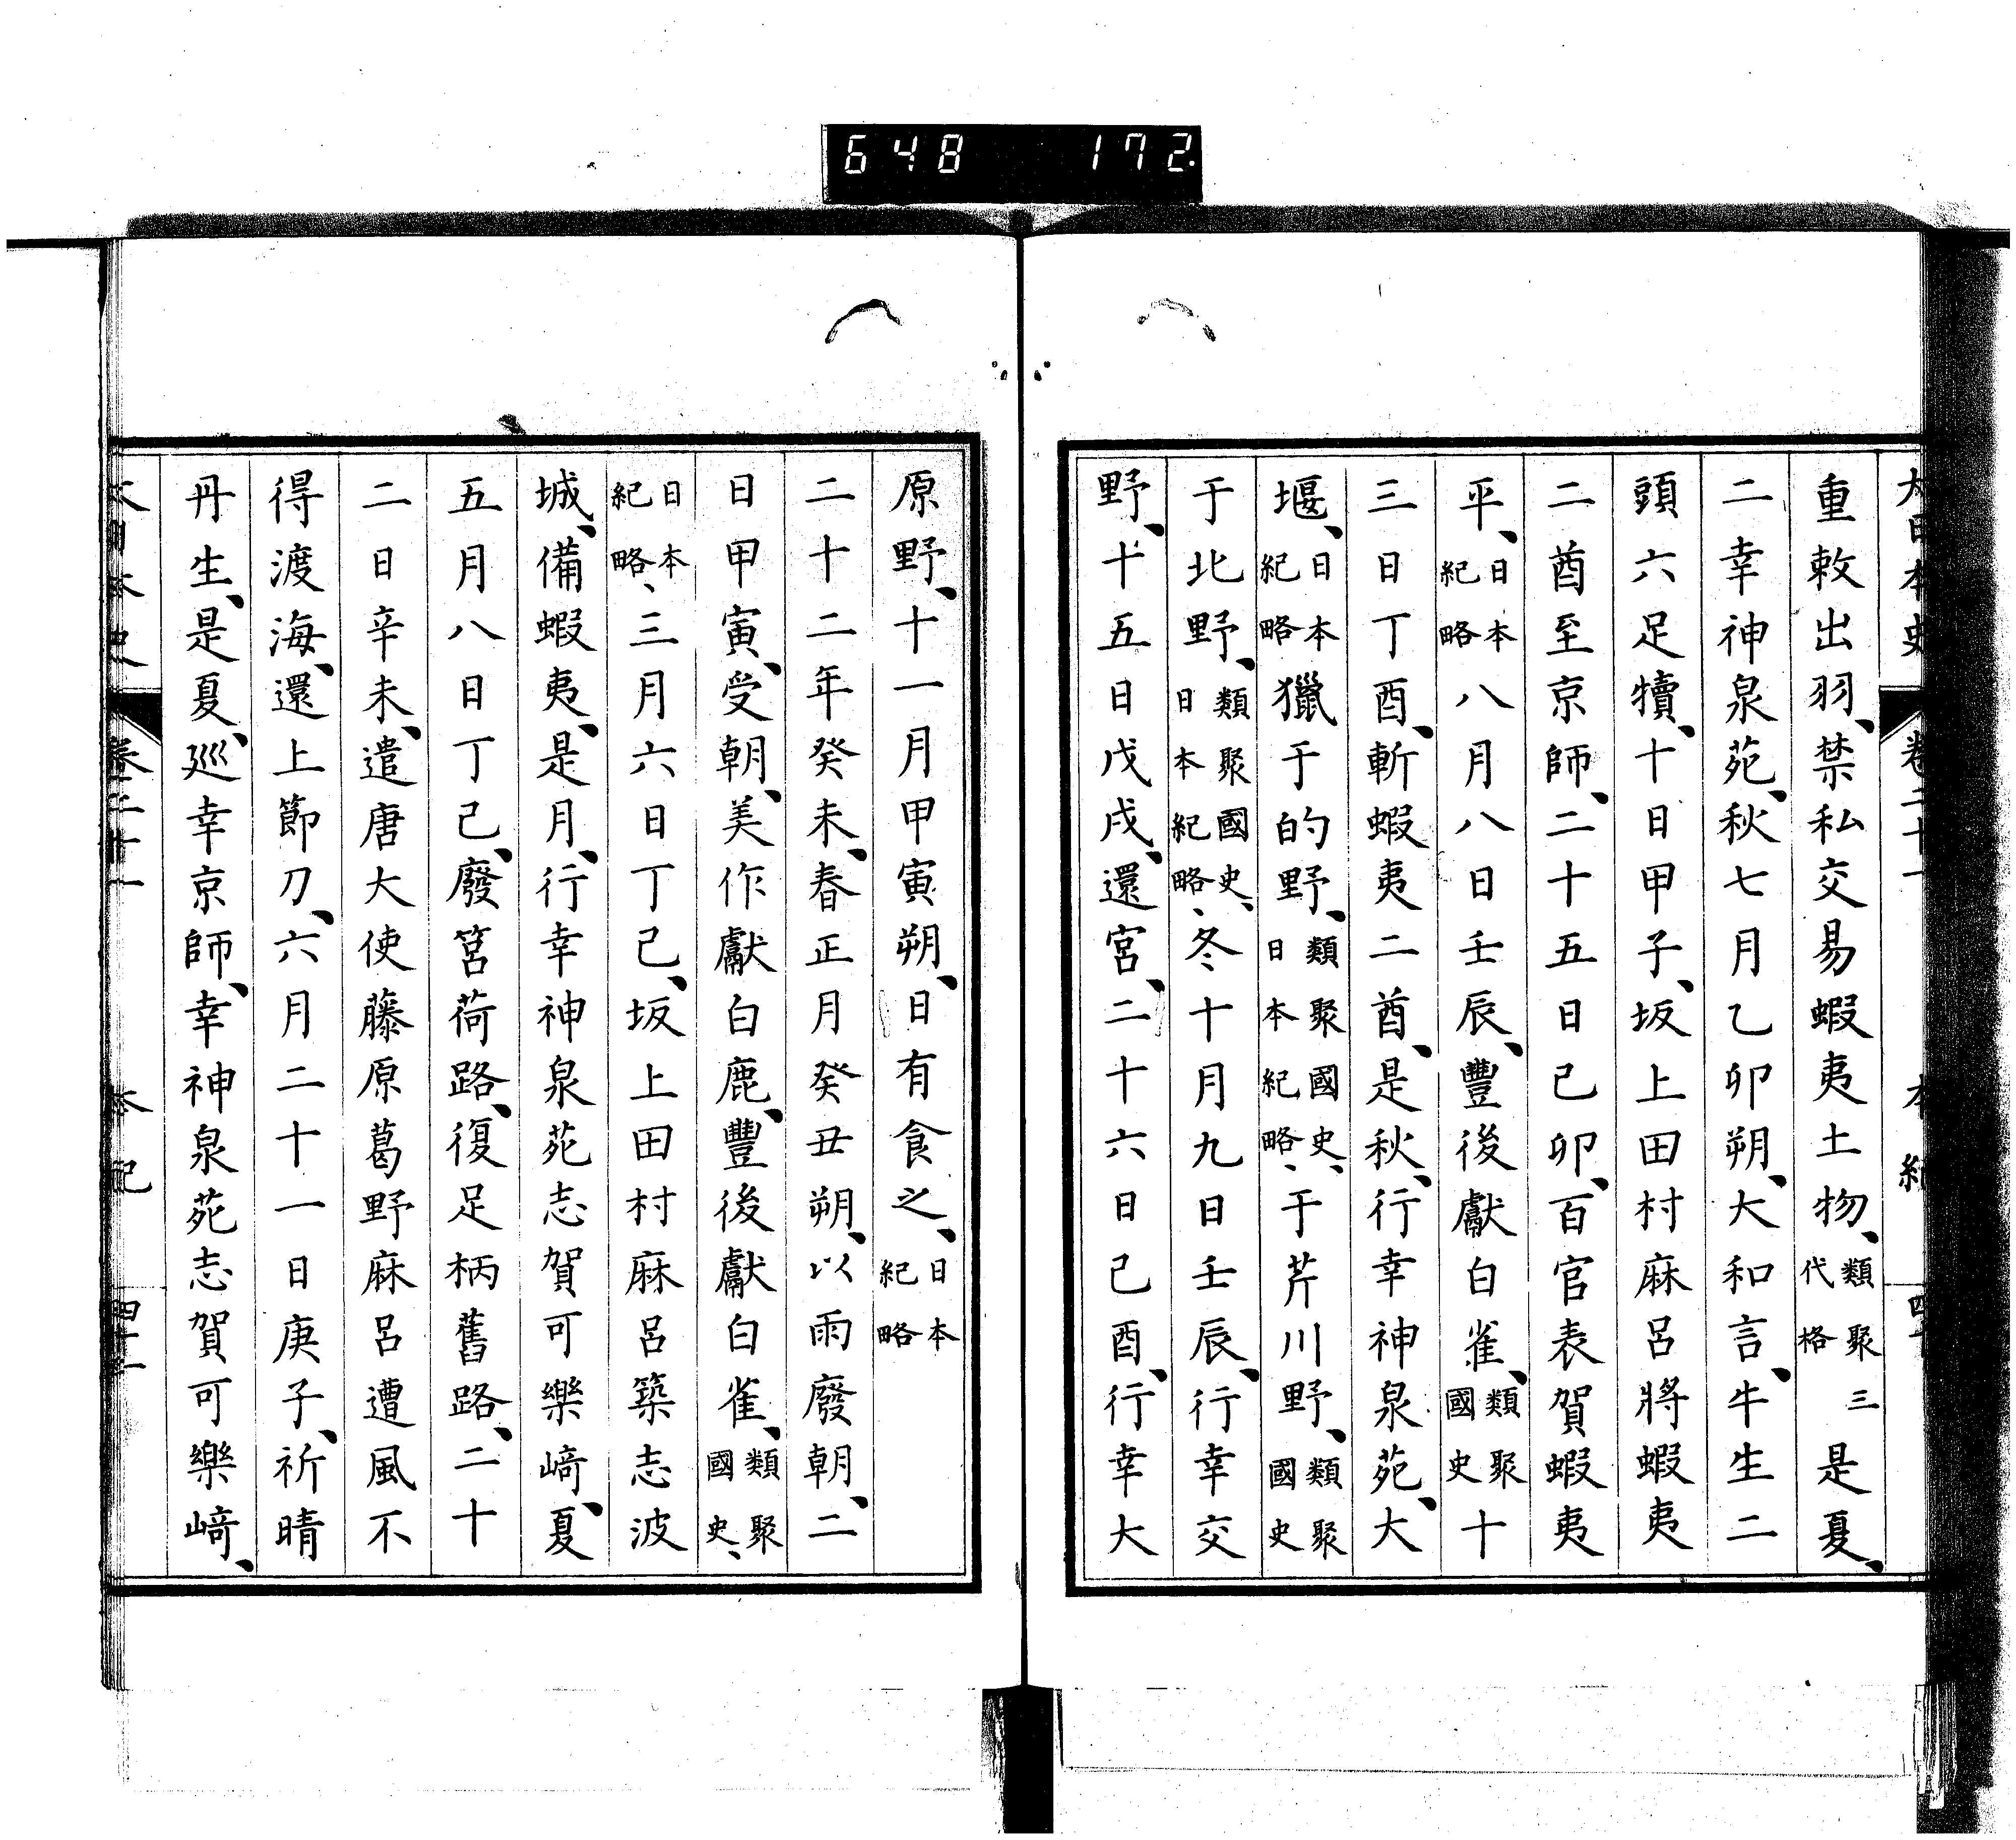 648 172
大日本史 卷二十一 本紀 四
重敕出羽、禁私交易蝦夷土物、類聚三代格是夏、
二幸神泉苑、秋七月乙卯朔、大和言、牛生二
頭六足犢、十日甲子、坂上田村麻呂將蝦夷
二酋至京師、二十五日己卯、百官表賀蝦夷
平、日本紀略八月八日壬辰、豐後獻白雀、類聚國史十
三日丁酉、斬蝦夷二酋、是秋、行幸神泉苑、大
堰、日本紀略獵于的野、類聚國史、日本紀略、于芹川野、類聚國史
于北野、類聚國史、日本紀略、冬十月九日壬辰、行幸交
野、十五日戊戌、還宮、二十六日己酉、行幸大
原野、十一月甲寅朔、日有食之、日本紀略
二十二年癸未、春正月癸丑朔、以雨廢朝、二
日甲寅、受朝、美作獻白鹿、豐後獻白雀、類聚國史、
日本紀略、三月六日丁己、坂上田村麻呂築志波
城、備蝦夷、是月、行幸神泉苑志賀可樂﨑、夏
五月八日丁己、廢筥荷路、復足柄舊路、二十
二日辛未、遣唐大使藤原葛野麻呂遭風不
得渡海、還上節刀、六月二十一日庚子、祈晴
丹生、是夏、巡幸京師、幸神泉苑志賀可樂﨑、
大日本史 卷二十一 本紀 四十一